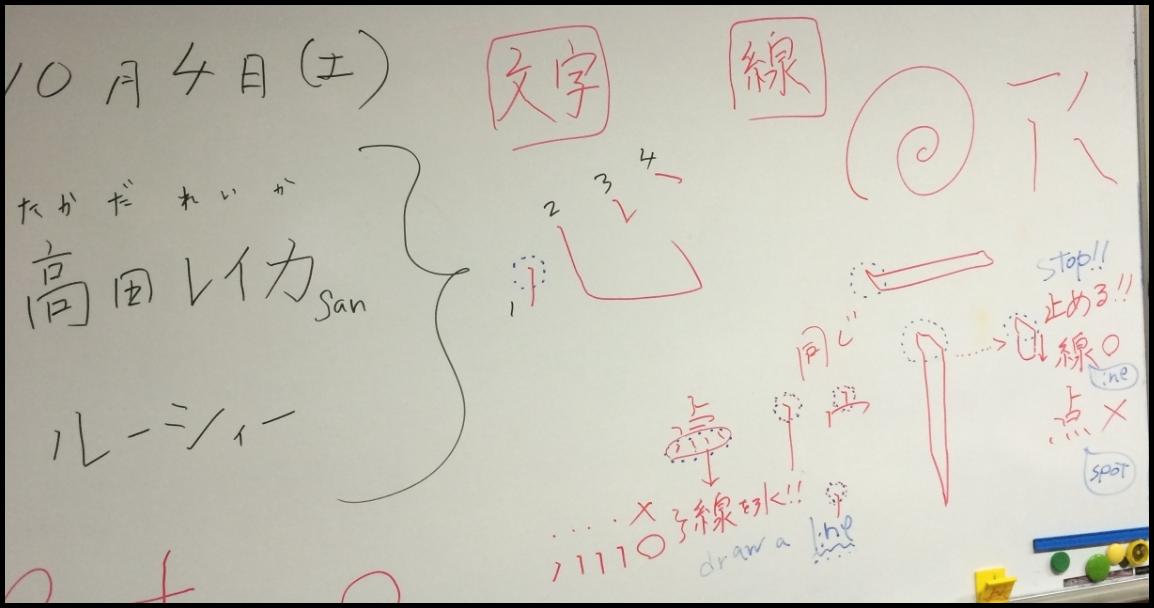 10月4日(土)
たかだ れいか
高田レイカsan
ルーシィー
文字
線
1
2
3
4
同じ
stop!!
止める!!
線○
line
点×
spot
点
×
○線を引く!!
draw a line